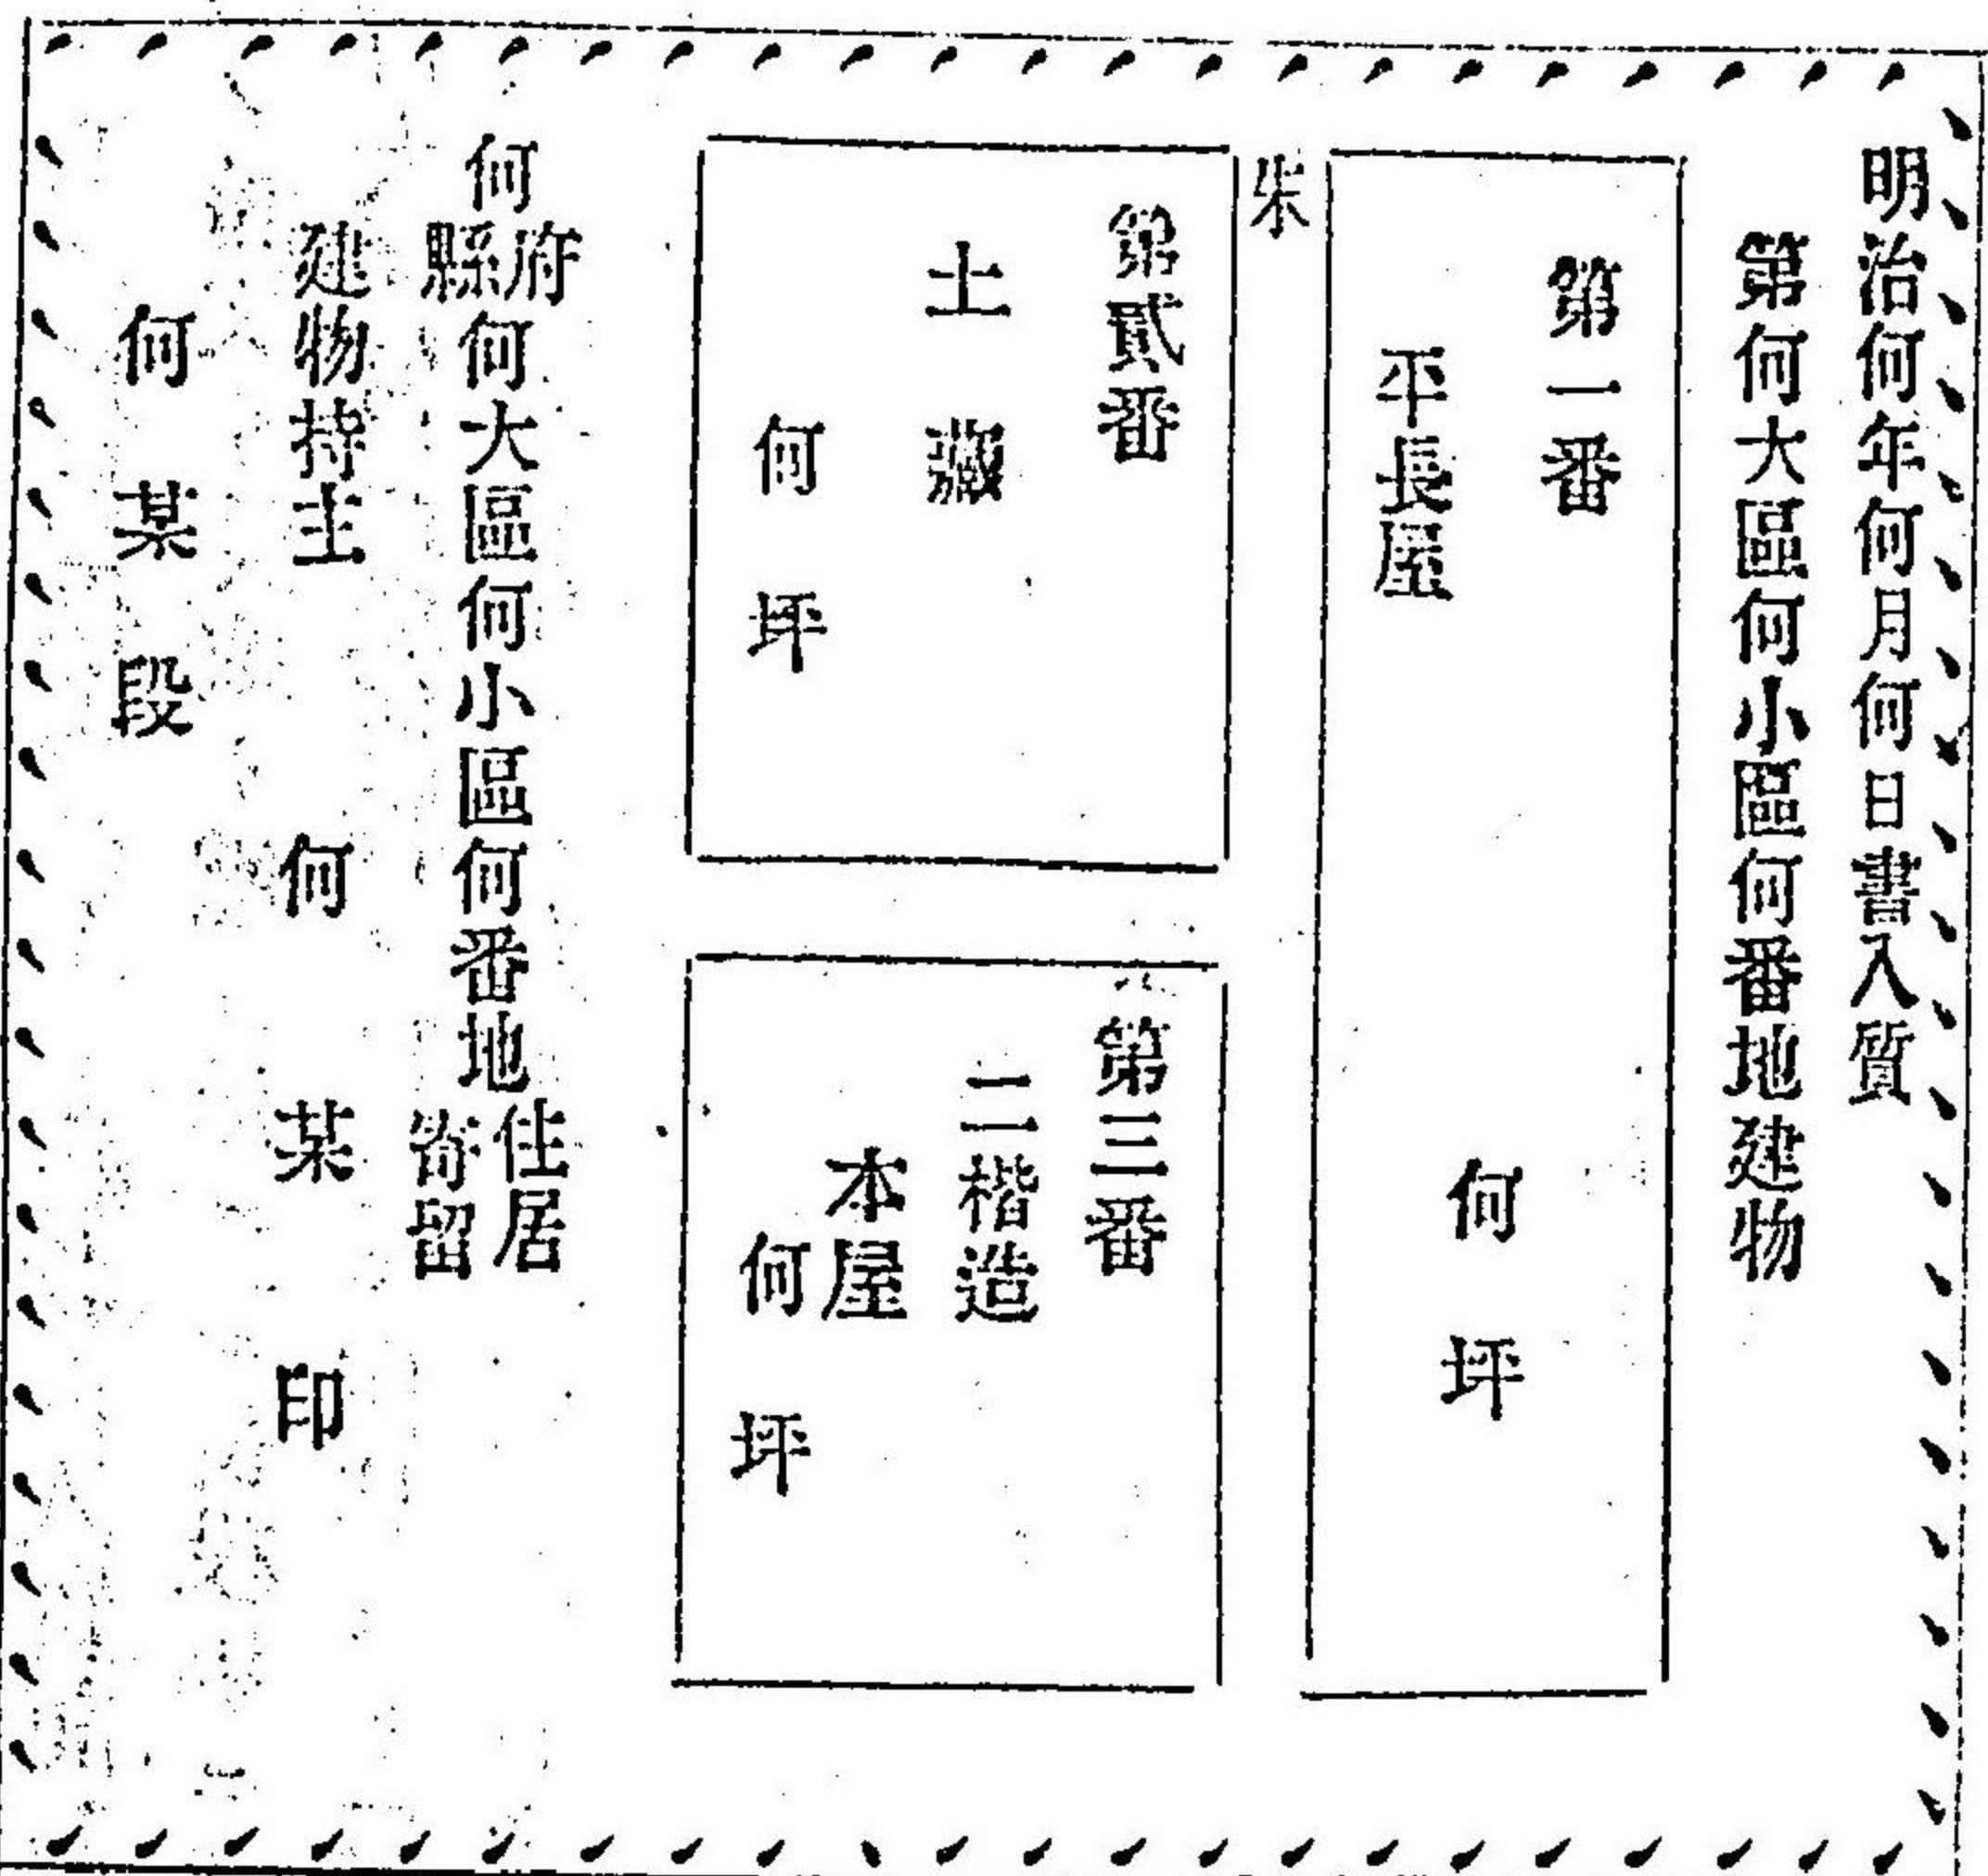 明治何年何月何日書入質
第何大區何小區何番地建物
第一番
平長屋
何坪
朱
第貳番
土藏
何坪
第三番
二楷造
本屋
何坪
何府縣何大區何小區何番地住居寄留
建物持主 何某印
何某段